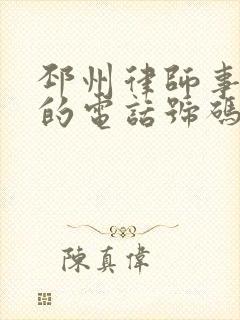 邳州律師事
的電話號碼
陳真偉